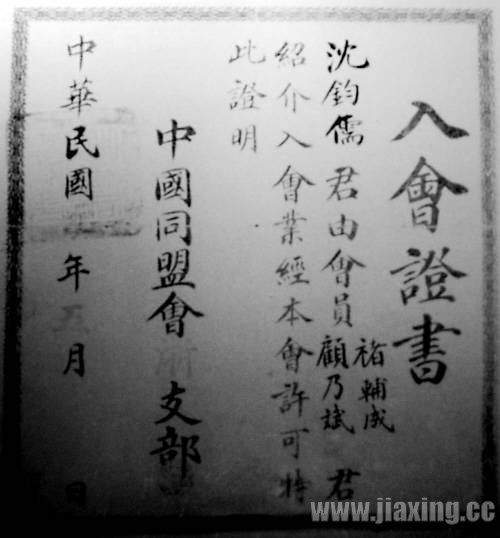 入會證書
沈鈞儒君由會員褚輔成顧乃斌君
紹介入會業經本會許可特
此證明
中國同盟會浙支部
中華民國 年五月 日
www.jiaxing.cc